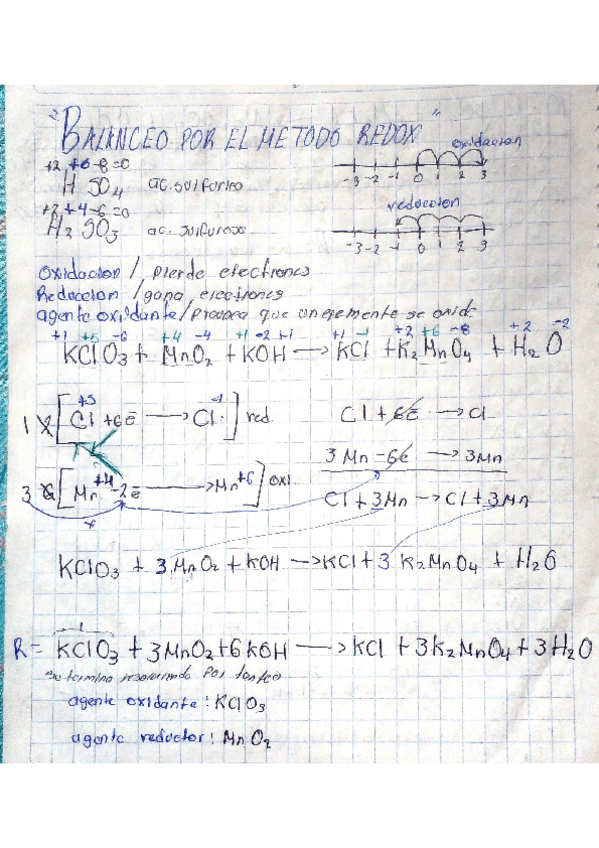 "BALANCEO POR EL METODO REDOX"
oxidacion
+2 +6 -8=0
H SO4 ac. sulfurico
-3 -2 -1 0 1 2 3
reduccion
+2 +4 -6=0
H2 SO3 ac. sulfuroso
-3 -2 -1 0 1 2 3
Oxidacion / pierde electrones
Reduccion / gana electrones
agente oxidante / Provoca que un elemento se oxide
+1 +5 -6 +4 -4 +1 -2 +1 +1 -1 +2 +6 -8 +2 -2
KClO3 + MnO2 + KOH → KCl + K2MnO4 + H2O
+5 -1
1 [Cl + 6e → Cl] red. Cl + 6e → Cl
3Mn - 6e → 3Mn
3 [Mn+4 - 2e → Mn+6] oxi.
Cl + 3Mn → Cl + 3Mn
KClO3 + 3MnO2 + KOH → KCl + 3 K2MnO4 + H2O
R= KClO3 + 3MnO2 + 6KOH → KCl + 3K2MnO4 + 3H2O
se termina resolviendo Por tanteo
agente oxidante: KClO3
agente reductor: MnO2